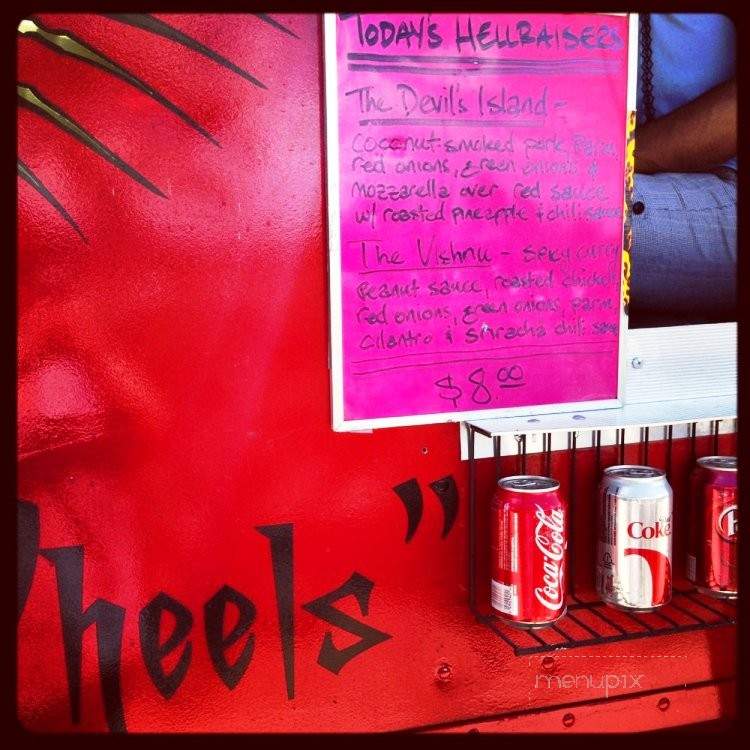 TODAY'S HELLRAISERS
The Devil's Island -
Coconut-smoked pork, Parm,
red onions, green onions &
mozzarella over red sauce
w/ roasted pineapple & chili sauce
The Vishnu - spicy curry
Peanut sauce, roasted chicken
red onions, green onions, parm
Cilantro & Sriracha chili sauce
$8.00
heels"
Coca-Cola
Coke
menupix